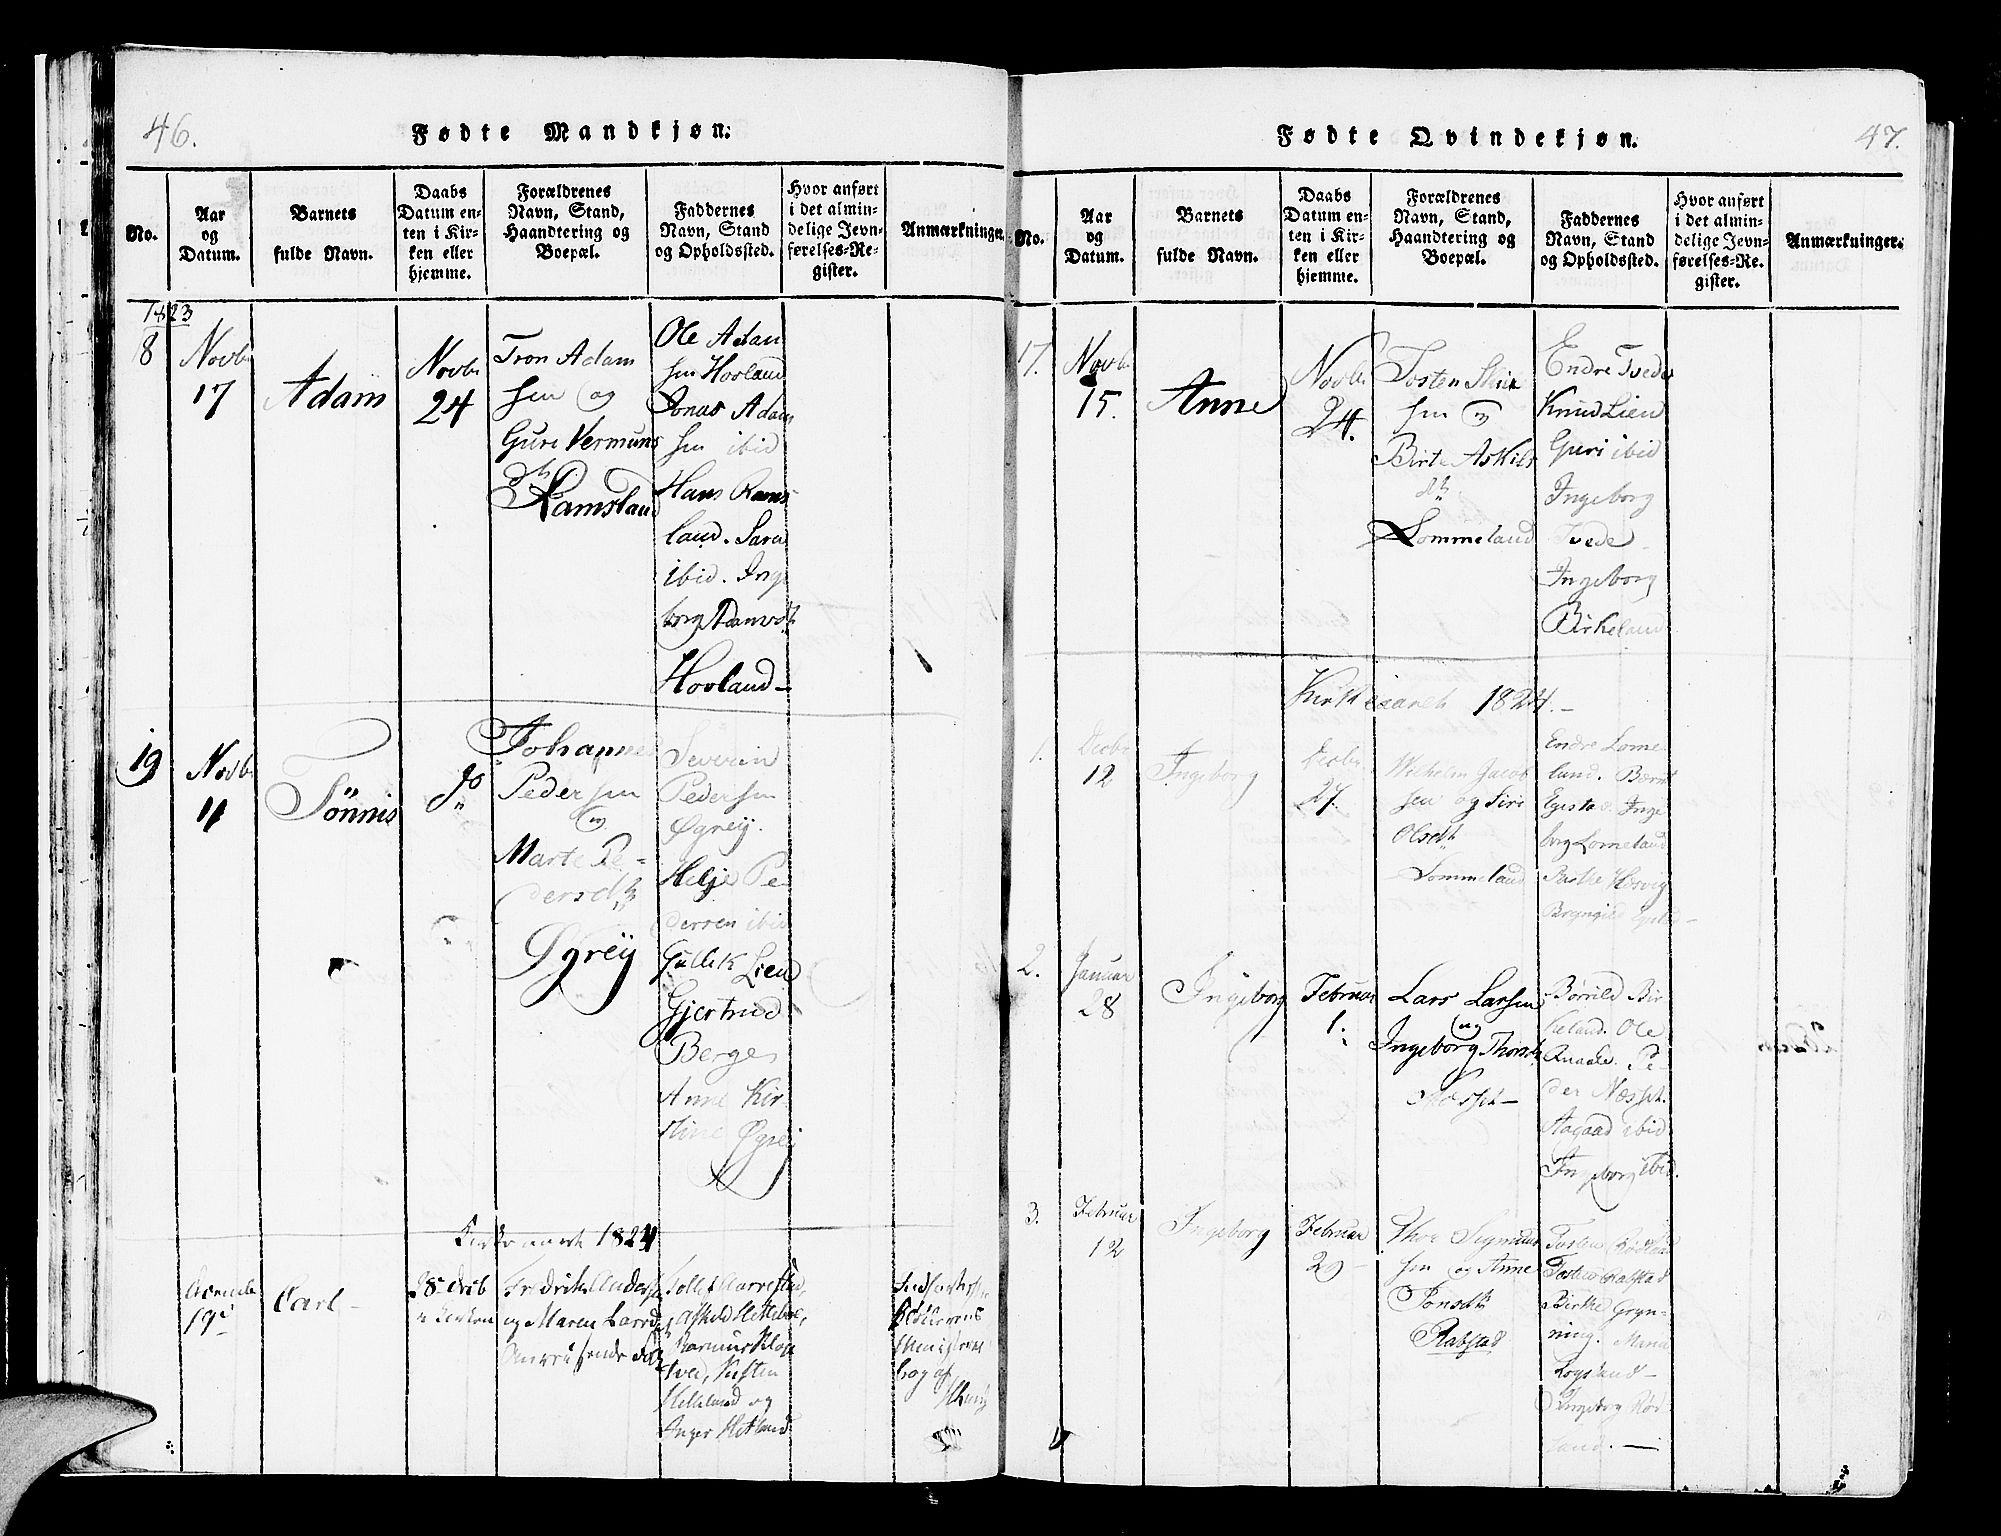 46.
Fødte Mandkjøn.
No.
Aar
og
Datum.
Barnets
fulde Navn.
Daabs
Datum en-
ten i Kir-
ken eller
hjemme.
Forældrenes
Navn, Stand,
Haandtering og
Boepæl.
Faddernes
Navn, Stand
og Opholdssted.
Hvor anført
i det almin-
delige Jevn-
førelses-Re-
gister.
Anmærkninger.
1823
8
Novbr
17
Adam
Novbr
24
Tron Adam
sen og
Guri Vermuns
dtr
Ramsland
Ole Adam
sen Hovland
Jonas Adam
sen ibid
Hans Rams
land. Sara
ibid. Inge
borg Adamsdtr
Hovland—
19
Novbr
11
Tönnis
do
Johannes
Pedersen
og
Marte Pe-
dersdtr
Øgreÿ
Severin
Pedersen
Øgreÿ.
Helje Pe
dersen ibid
Gullik Lien
Gjertrud
Berge
Anne Kir
stine Øgreÿ
Kirkeaaret 1824
19de
Carl—
28 Decb
i Kirken
Fredrik Anders
og Maren Larsd
Tollef Aarrestad,
Askild Hetteboe,
Rasmus Klop
tved, Kisten
Helleland og
Inger Hetland
Ministerial
bog af
47.
Fødte Qvindekjøn.
No.
Aar
og
Datum.
Barnets
fulde Navn.
Daabs
Datum en-
ten i Kir-
ken eller
hjemme.
Forældrenes
Navn, Stand,
Haandtering og
Boepæl.
Faddernes
Navn, Stand
og Opholdssted.
Hvor anført
i det almin-
delige Jevn-
førelses-Re-
gister.
Anmærkninger.
17.
Novbr
15.
Anne
Novbr
24.
Tosten
sen og
Birte Askils
dtr
Lommeland
Endre Tvede
Knud Lien
Guri ibid
Ingeborg
Tvede
Ingeborg
Birkeland
Kirkeaaret 1824.—
1.
Decbr
12
Ingeborg
Decbr
27.
Wilhelm Jacob
sen og Siri
Olsdtr
Lommeland
Endre Lome
land. Bernt
Egestad. Inge
borg Lomeland
2.
Januar
28
Ingeborg
Februar
1.
Lars Larsen
og
Ingeborg Thorsdtr
Næsset—
Børrild Bir
keland. Ole
Qvaale. Pe-
der Næsset.
Aagaad ibid
Ingeborg ibid.
3.
Februar
12
Ingeborg
Februar
29—
Thor Sigmund
sen og Anne
Jonsdtr
Rabstad
Tosten Rødland
Tosten Rabstad
Birthe Gryn-
ning.
Ingeborg Rød-
land.—